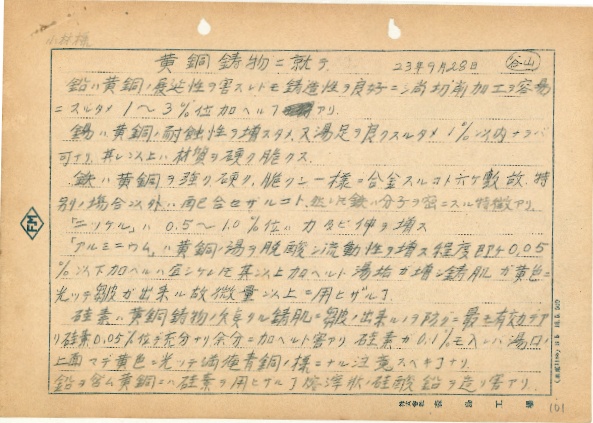 小林様
黄銅鋳物ニ就テ 23年9月28日 谷山
鉛ハ黄銅ノ展延性ヲ害スレトモ鋳造性ヲ良好ニシ尚切削加工ヲ容易
ニスルタメ 1〜3%位加ヘルヿアリ.
錫ハ黄銅ノ耐蝕性ヲ増スタメ、又湯足ヲ良クスルタメ 1%以内ナラバ
可ナリ, 其レ以上ハ材質ヲ硬ク脆クス.
鉄ハ黄銅ヲ強ク硬ク, 脆クシ一様ニ合金スルコト六ケ敷故, 特
別ノ場合以外ハ配合セザルコト. 然シ鉄ハ分子ヲ密ニスル特徴アリ.
「ニッケル」ハ 0.5〜1.0%位ハ力及ビ伸ヲ増ス
「アルミニウム」ハ黄銅ノ湯ヲ脱酸シ流動性ヲ増ス程度即チ0.05
%以下加ヘルハ 其以上加ヘルト湯垢ガ増シ鋳肌ガ黄色ニ
光ッテ皺ガ出来ル故微量以上ニ用ヒザルヿ
硅素ハ黄銅鋳物ノ 鋳肌ニ皺ノ出来ルノヲ防グニ最モ有効デア
リ硅素0.05%位デ充分ナリ余分ニ加ヘルト害アリ 硅素ガ0.1%モ入レバ湯口ノ
上面マデ黄色ニ光ッテ 青銅ノ様ニナル注意スベキヿナリ.
鉛ヲ含ム黄銅ニハ硅素ヲ用ヒザルヿ 硅酸鉛ヲ造リ害アリ.
FM
株式会社 工場
101